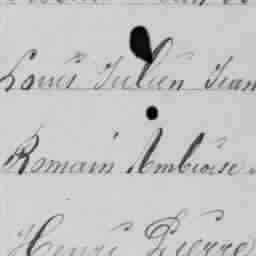 Louis Julien Jean
Romain Ambroise
Henri Pierre